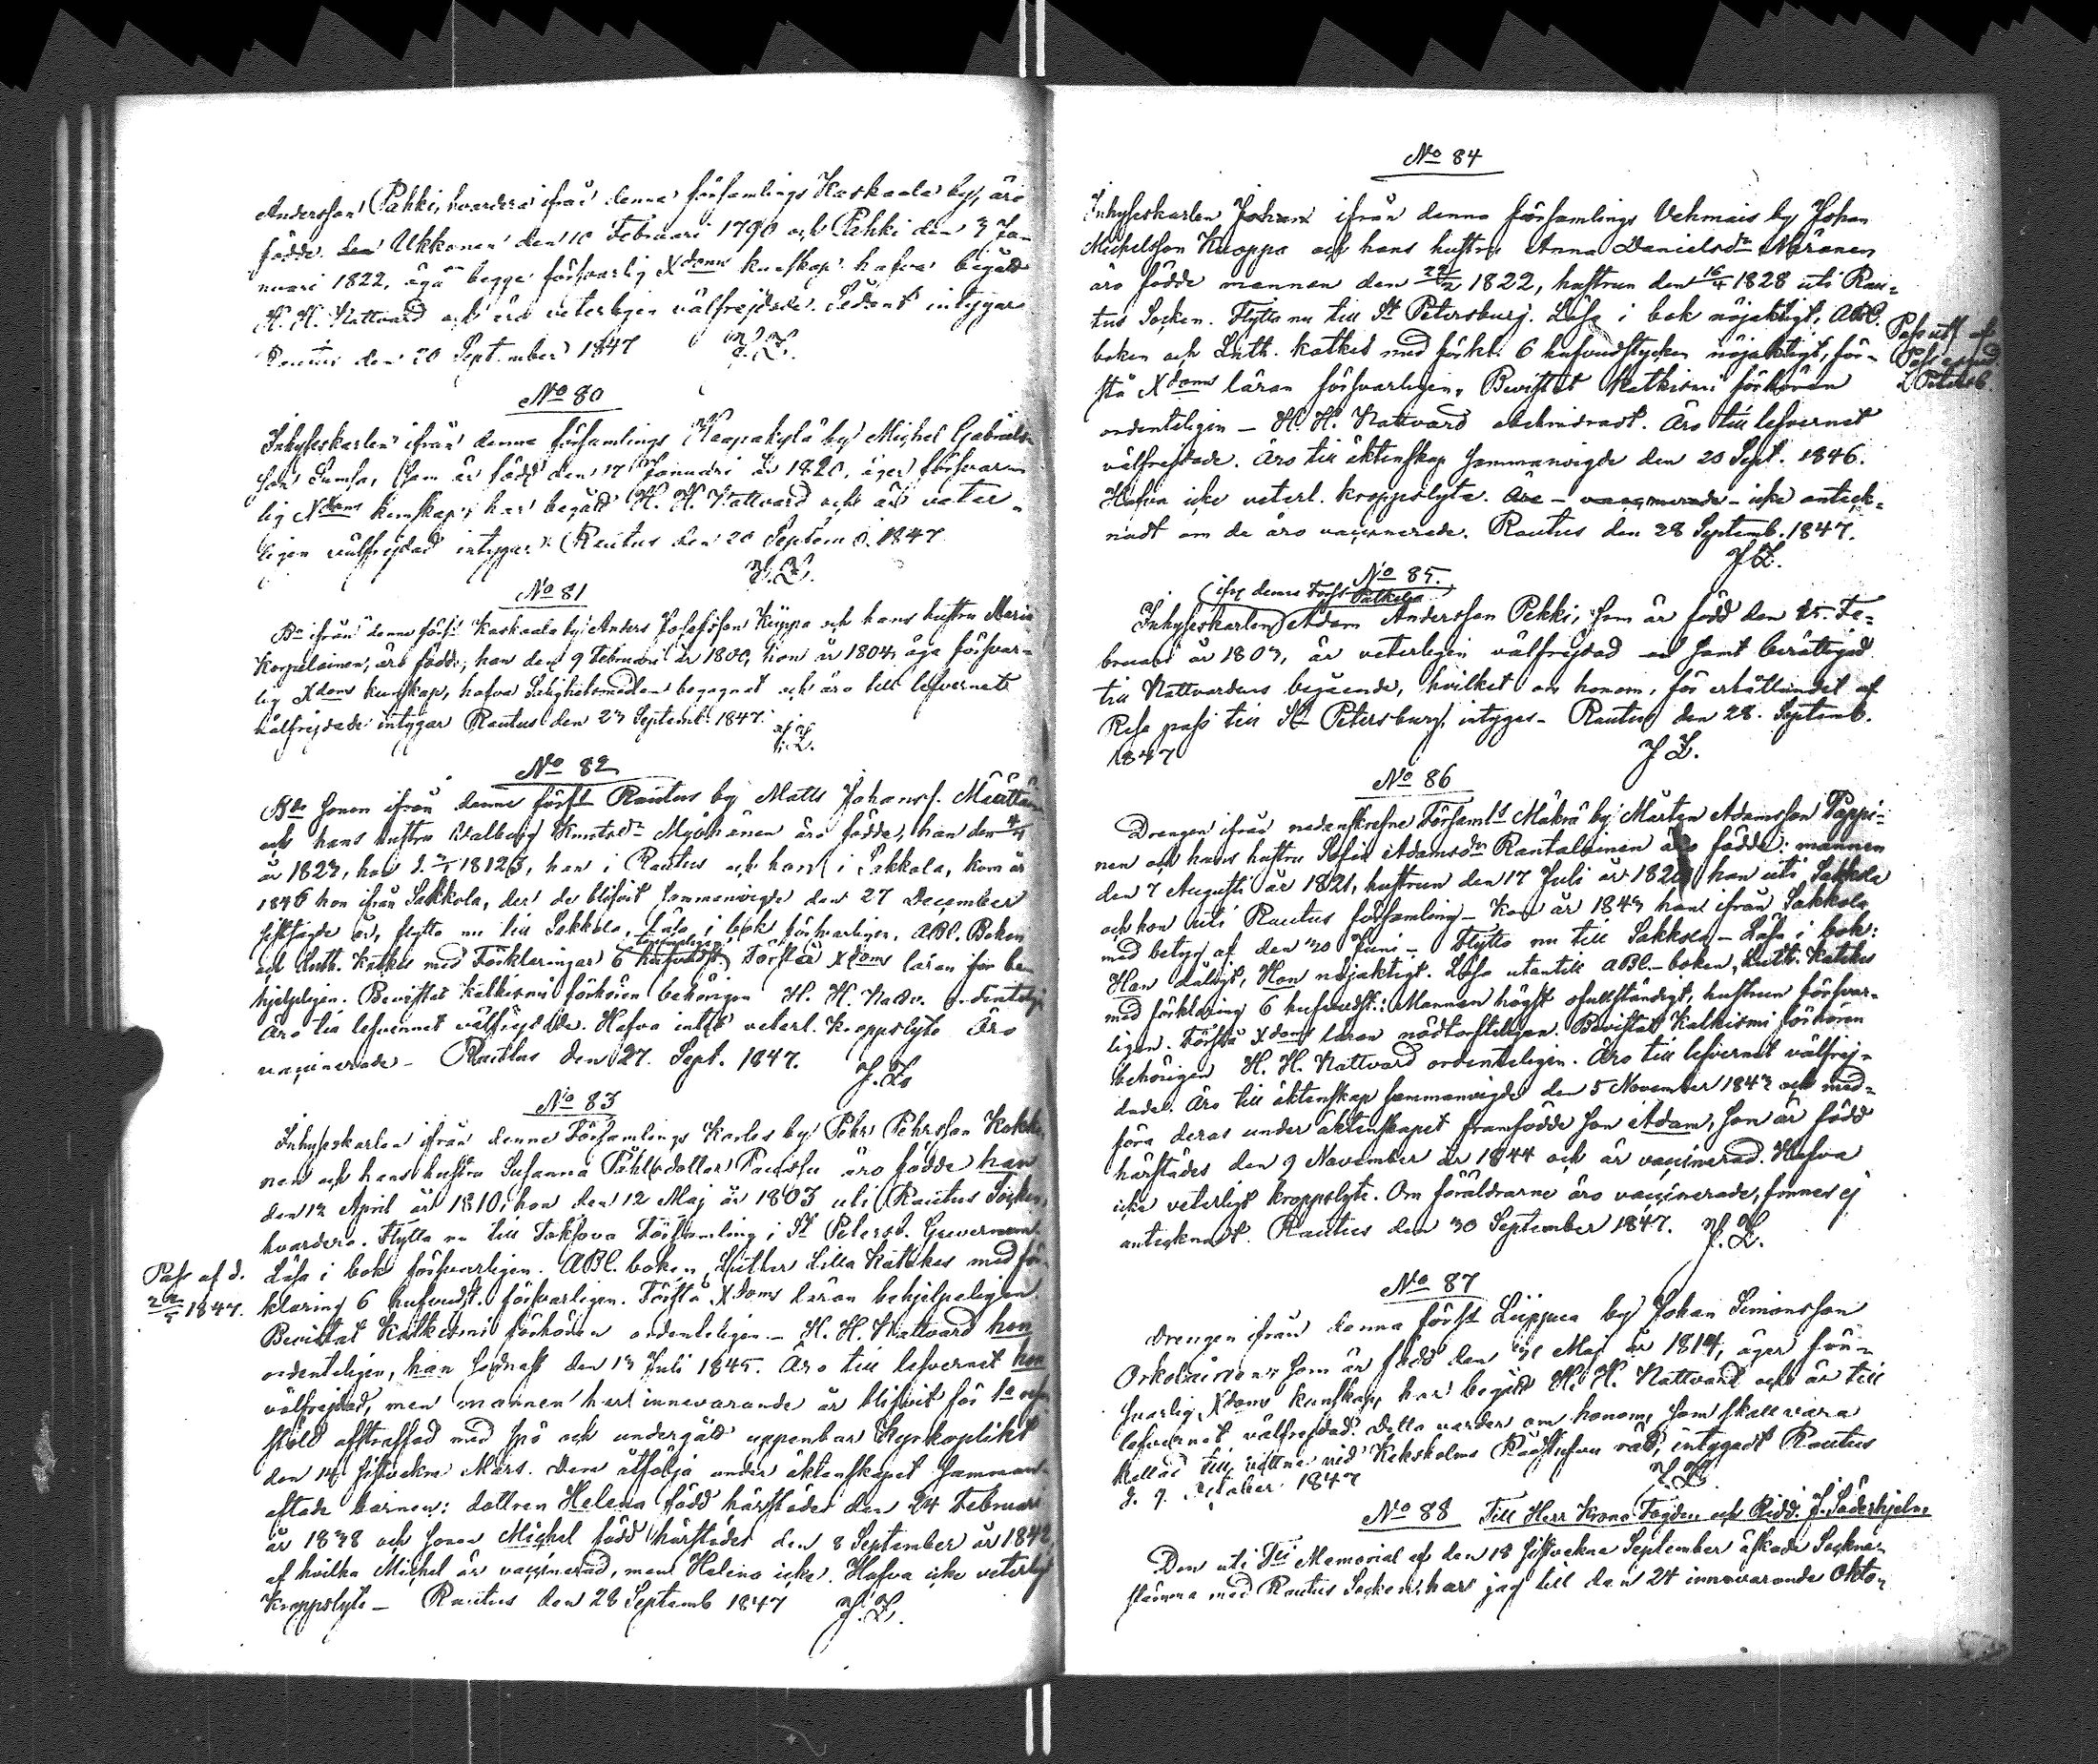 Andersson Pahki, hvardera ifrån denna församlings Kaskaala by, äro
födde Ukkonen den 10 Februari 1790 och Pehki den 3 Ja-
nuari 1822, äga begge försvarlig Xdoms kunskap hafva begått
H. H. Nattvard och äro veterligen välfrejdade. Sådant intygar
Rautus den 20 September 1847
J. L.
No 80
Inhyseskarlen ifrån denna församlings Haapakylä by Michel Gabriels-
son Sumsa, som är född den 17 Januari år 1820, äger försvar-
lig Xdoms kunskap, har begått H. H. Nattvard och är veter-
ligen välfrejdad intygar Rautus den 20 Septem b. 1847
J. L.
No 81
Bn ifrån denna förs. Kaskaala by Anders Josefsson Kiuppa och hans hustru Maria
Korpelainen, äro födde, han den 9 Februari år 1800, hon år 1804, äga försvar-
lig Xdoms kunskap, hafva Salighetsmedlen begagnat och äro till lefvernet
välfrejdade intygar Rautus den 23 Septemb. 1847.
J. L.
No 82
Bde Sonen ifrån denna förs. Rautus by Matts Johanss.
och hans hustru Walborg Knutsdr Myöhänen äro födde, han den
år 1823, hon d. han i Rautus och hon i Sakkola, kom år
1846 hon ifrån Sakkola, der de blifvit sammanvigde den 27 December
sistsagde år, flytta nu till Sakkola. Läsa i bok försvarligen. ABC. Boken
och Luth. Katkes med Förklaringar 6 hufvudst. Förstå Xdoms läran be-
hjelpligen. Bevistat Katkismi förhören behörigen H. H. Nattv. ordentelig
Äro till lefvernet välfrejdade. Hafva intet veterl. Kroppslyte Äro
vaccinerade - Rautus den 27 Sept. 1847.
J. L.
No 83
Inhyseskarlen ifrån denna Församlings Karles by Pehr Pehrsson Kokko-
nen och hans hustru Susanna Påhlsdotter Paussu äro födde han
den 12 April år 1810, hon den 12 Maj år 1803 uti Rautus Socken,
hvardera. Flytta nu till Toksova Församling i St Petersb. Guvernem.
Läsa i bok försvarligen. ABC. boken, Luther Lilla Katekes med för-
klaring 6 hufvudst. försvarligen. Förstå Xdoms läran behjelpeligen.
Bevistat Katkismi förhören ordenteligen - H. H. Nattvard hon
ordenteligen, han sednast den 13 Juli 1845. Äro till lefvernet hon
välfrejdad, men mannen har innevarande år blifvit för 1a
stöld afstraffad med spö och undergått uppenbar Kyrkoplikt
den 14 sistvekne Mars. Dem åtfölja under äktenskapet samman-
aflade barnen: dottren Helena född härstädes den 24 Februari
år 1838 och sonen Michel född härstädes den 8 September år 1842
af hvilka Michel är vaccinerad, men Helena icke. Hafva icke veterligt
Kroppslyte - Rautus den 28 Septemb 1847
J. L.
Pass af d.
1847.
No 84
Inhyseskarlen Johan ifrån denna församlings Vehmais by Johan
Michelsson Kuoppa och hans hustru Anna Danielsdr Näränen
äro födde mannen den 22/2 1822, hustrun den 16/4 1828 uti Rau-
tus Socken. Flytta nu till St Petersburg. Läsa i bok nöjaktigt, ABC.
boken och Luth. Katkes med förkl. 6 hufvudstycken nöjaktigt, för-
stå Xdoms läran försvarligen. Bevistat Katkismi förhören
ordenteligen - H. H. Nattvard obehindradt. Äro till lefvernet
välfrejdade. Äro till äktenskap sammanvigde den 20 Sept. 1846.
Hafva icke veterl. kroppslyte. Äro - vaccinerade - icke anteck-
nadt om de äro vaccinerade. Rautus den 28 Septemb. 1847.
J L.
Pass utf. af
Petersb.
No 85.
(ifr denna Förs. Palkeala
Inhyseskarlen) Adam Andersson Pekki, som är född den 15. Fe-
bruari år 1803, är veterligen välfrejdad samt berättigad
till Nattvardens begående, hvilket om honom, för erhållandet af
Resepass till St Petersburg, intygas - Rautus den 28. Septemb.
1847
J L.
No 86
Drengen ifrån nedanskrefne Församls Mäkrä by Mårten Adamsson Pappi-
nen och hans hustru Sofia Adamsdr Rantalainen äro födde: mannen
den 7 Augusti år 1821, hustrun den 17 Juli år 182 han uti Sakkola
och hon uti Rautus församling - Kom år 1843 han ifrån Sakkola
med betyg af den 30 Juni - Flytta nu till Sakkola - Läsa i bok:
Han dåligt, Hon nöjaktigt. Läsa utantill ABC-boken, Luth. Katekes
med förklaring 6 hufvudst.: Mannen högst ofullständigt, hustrun försvar-
ligen. Förstå Xdoms läran nödtorfteligen. Bevistat Katkismi förhören
behörigen H. H. Nattvard ordenteligen. Äro till lefvernet välfrej-
dade. Äro till äktenskap sammanvigde den 5 November 1843 och med-
föra deras under äktenskapet framfödde son Adam, som är född
härstädes den 9 November år 1844 och är vaccinerad. Hafva
icke veterligt kroppslyte. Om föräldrarne äro vaccinerade, finnes ej
antecknadt. Rautus den 30 September 1847.
J. L.
No 87
Drengen ifrån denna förs. Liippua by Johan Simonsson
Orkolainen, som är född den 31 Maj år 1814, äger för-
svarlig Xdoms kunskap, har begått H. H. Nattvard och är till
lefvernet välfrejdad. Detta varder om honom, som skall vara
kallad till vittne vid Kekskolms Rådstufvu rätt, intygadt Rautus
d. 9. October 1847
J. L.
No 88 Till Herr Krono Fogden och Ridd. af Söderhjelm
Den uti Memorial af den 18 sistvekne September äskade Sockne-
stämma med Rautus Socken, har jag till den 24 innevarande Okto-